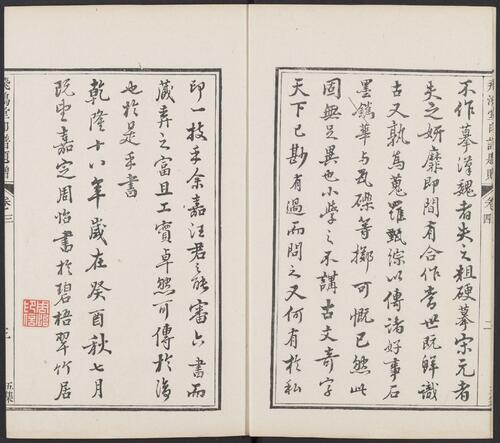 不作摹漢魏者失之粗硬摹宋元者
失之妍靡即間有合作當世既鮮識
古又孰為蒐羅甄綜以傳諸好事石
墨鐫華与瓦礫等擲可慨已然此
固無足異也小學之不講古文奇字
天下已尠有過而問之又何有於私
印一技乎余嘉汪君之能審六書而
藏弆之富且工實卓然可傳於後
也於是乎書
乾隆十八年歲在癸酉秋七月
既望嘉定周怡書於碧梧翠竹居
飛鴻堂印譜題贈 卷三
三
五集
卷四
二